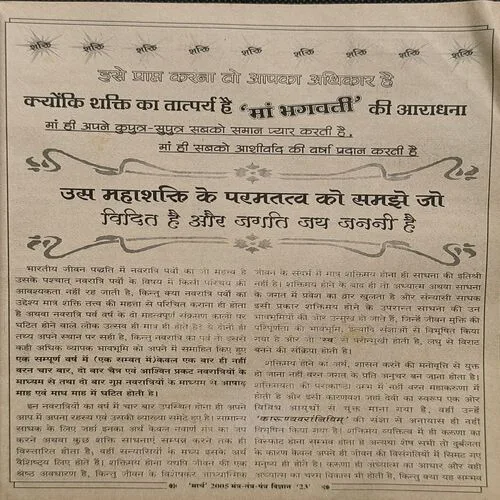 शक्ति शक्ति शक्ति शक्ति शक्ति शक्ति शक्ति शक्ति
इसे प्राप्त करना तो आपका अधिकार है
क्योंकि शक्ति का तात्पर्य है 'मां भगवती' की आराधना
मां ही अपने कुपुत्र-सुपुत्र सबको समान प्यार करती है,
मां ही सबको आशीर्वाद की वर्षा प्रदान करती है
उस महाशक्ति के परमतत्व को समझे जो
विदित है और जगति जय जननी है
भारतीय जीवन पद्धति में नवरात्रि पर्वों का जो महत्व है
उसके पश्चात् नवरात्रि पर्वों के विषय में किसी परिचय की
आवश्यकता नहीं रह जाती है, किन्तु क्या नवरात्रि पर्वों का
उद्देश्य मात्र शक्ति तत्व की महत्ता से परिचित कराना ही होता
है अथवा नवरात्रि पर्व वर्ष के दो महत्वपूर्ण संक्रमण कालों पर
घटित होने वाले लोक उत्सव ही मात्र ही होते हैं? ये दोनों ही
तथ्य अपने स्थान पर सही हैं, किन्तु नवरात्रि का पर्व तो इससे
कही अधिक व्यापक भावभूमि को अपने में समाहित किए हुए
एक सम्पूर्ण वर्ष में (एक सम्वत में) केवल एक बार ही नहीं
वरन चार बार, दो बार चैत्र एवं आश्विन प्रकट नवरात्रियों के
माध्यम से तथा दो बार गुप्त नवरात्रियों के माध्यम से आषाढ़
माह एवं माघ माह में घटित होती है।
इन नवरात्रियों का वर्ष में चार बार उपस्थित होना ही अपने
आप में अथाह रहस्य एवं उसकी व्याख्या समेटे हुए है। सामान्य
साधक के लिए जहां इनका अर्थ केवल नवार्ण मंत्र का जप
करने अथवा कुछ शक्ति साधनाएं सम्पन्न करने तक ही
विस्तारित होता है, वहीं सन्यासियों के मध्य इसके अर्थ
वैशिष्ट्य लिए होते हैं। शक्तिमय होना यद्यपि जीवन की एक
श्रेष्ठ अवधारणा है, किन्तु जीवन के विशेषकर तांत्रोक्तात्मिक
जीवन के संदर्भ में मात्र शक्तिमय होना ही साधना की इतिश्री
नहीं है। शक्तिमय होने के बाद ही तो अध्यात्म अथवा साधना
के जगत में प्रवेश का द्वार खुलता है और संन्यासी साधक
इसी प्रकार शक्तिमय होने के उपरान्त साधना की उन
भावभूमियों की ओर उन्मुख हो जाते हैं, जिन्हें जीवन मुक्ति की
परिपूर्णता की भावभूमि इत्यादि संज्ञाओं से विभूषित किया
गया है और जो 'स्व' से परान्मुखी होती है, लघु से विराट
बनने की संक्रिया होती है।
शक्तिमय होने का अर्थ, शासन करने की मनोवृत्ति से युक्त
हो जाना नहीं वरन जगत के प्रति अनुचर बन जाना होता है।
शक्तिमयता की पराकाष्ठा दम्भ में नहीं वरन महाकरूणा में
होती है और इसी कारणवश जहां देवी का स्वरूप एक ओर
विविध आयुधों से युक्त माना गया है, वहीं उन्हें
की संज्ञा से अनायास ही नहीं
विभूषित किया गया है। शक्तिमय होने का अर्थ ही करूणा का
विस्फोट होना सम्भव होता है अन्यथा शेष सभी तो दुर्बलता
के कारण केवल अपने ही जीवन की विसंगतियों में सिमट गए
होते हैं। करूणा ही अध्यात्म का आधार और वही
अध्यात्म का चरम विकास भी होती है, किन्तु क्या यह सम्भव
'मार्च' 2005 मंत्र-तंत्र-यंत्र विज्ञान '23'